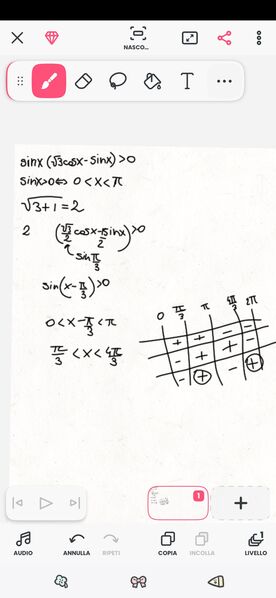 NASCO...
T
sinx(√3cosx-sinx)>0
sinx>0⇔ 0<x<π
√3+1=2
2 (√3/2 cosx-1/2sinx)>0
sin π/3
sin(x-π/3)>0
0<x-π/3<π
π/3<x<4π/3
0 π/3 π 4π/3 2π
+ + - -
- + + -
- + - +
1
+
AUDIO ANNULLA RIPETI COPIA INCOLLA LIVELLO